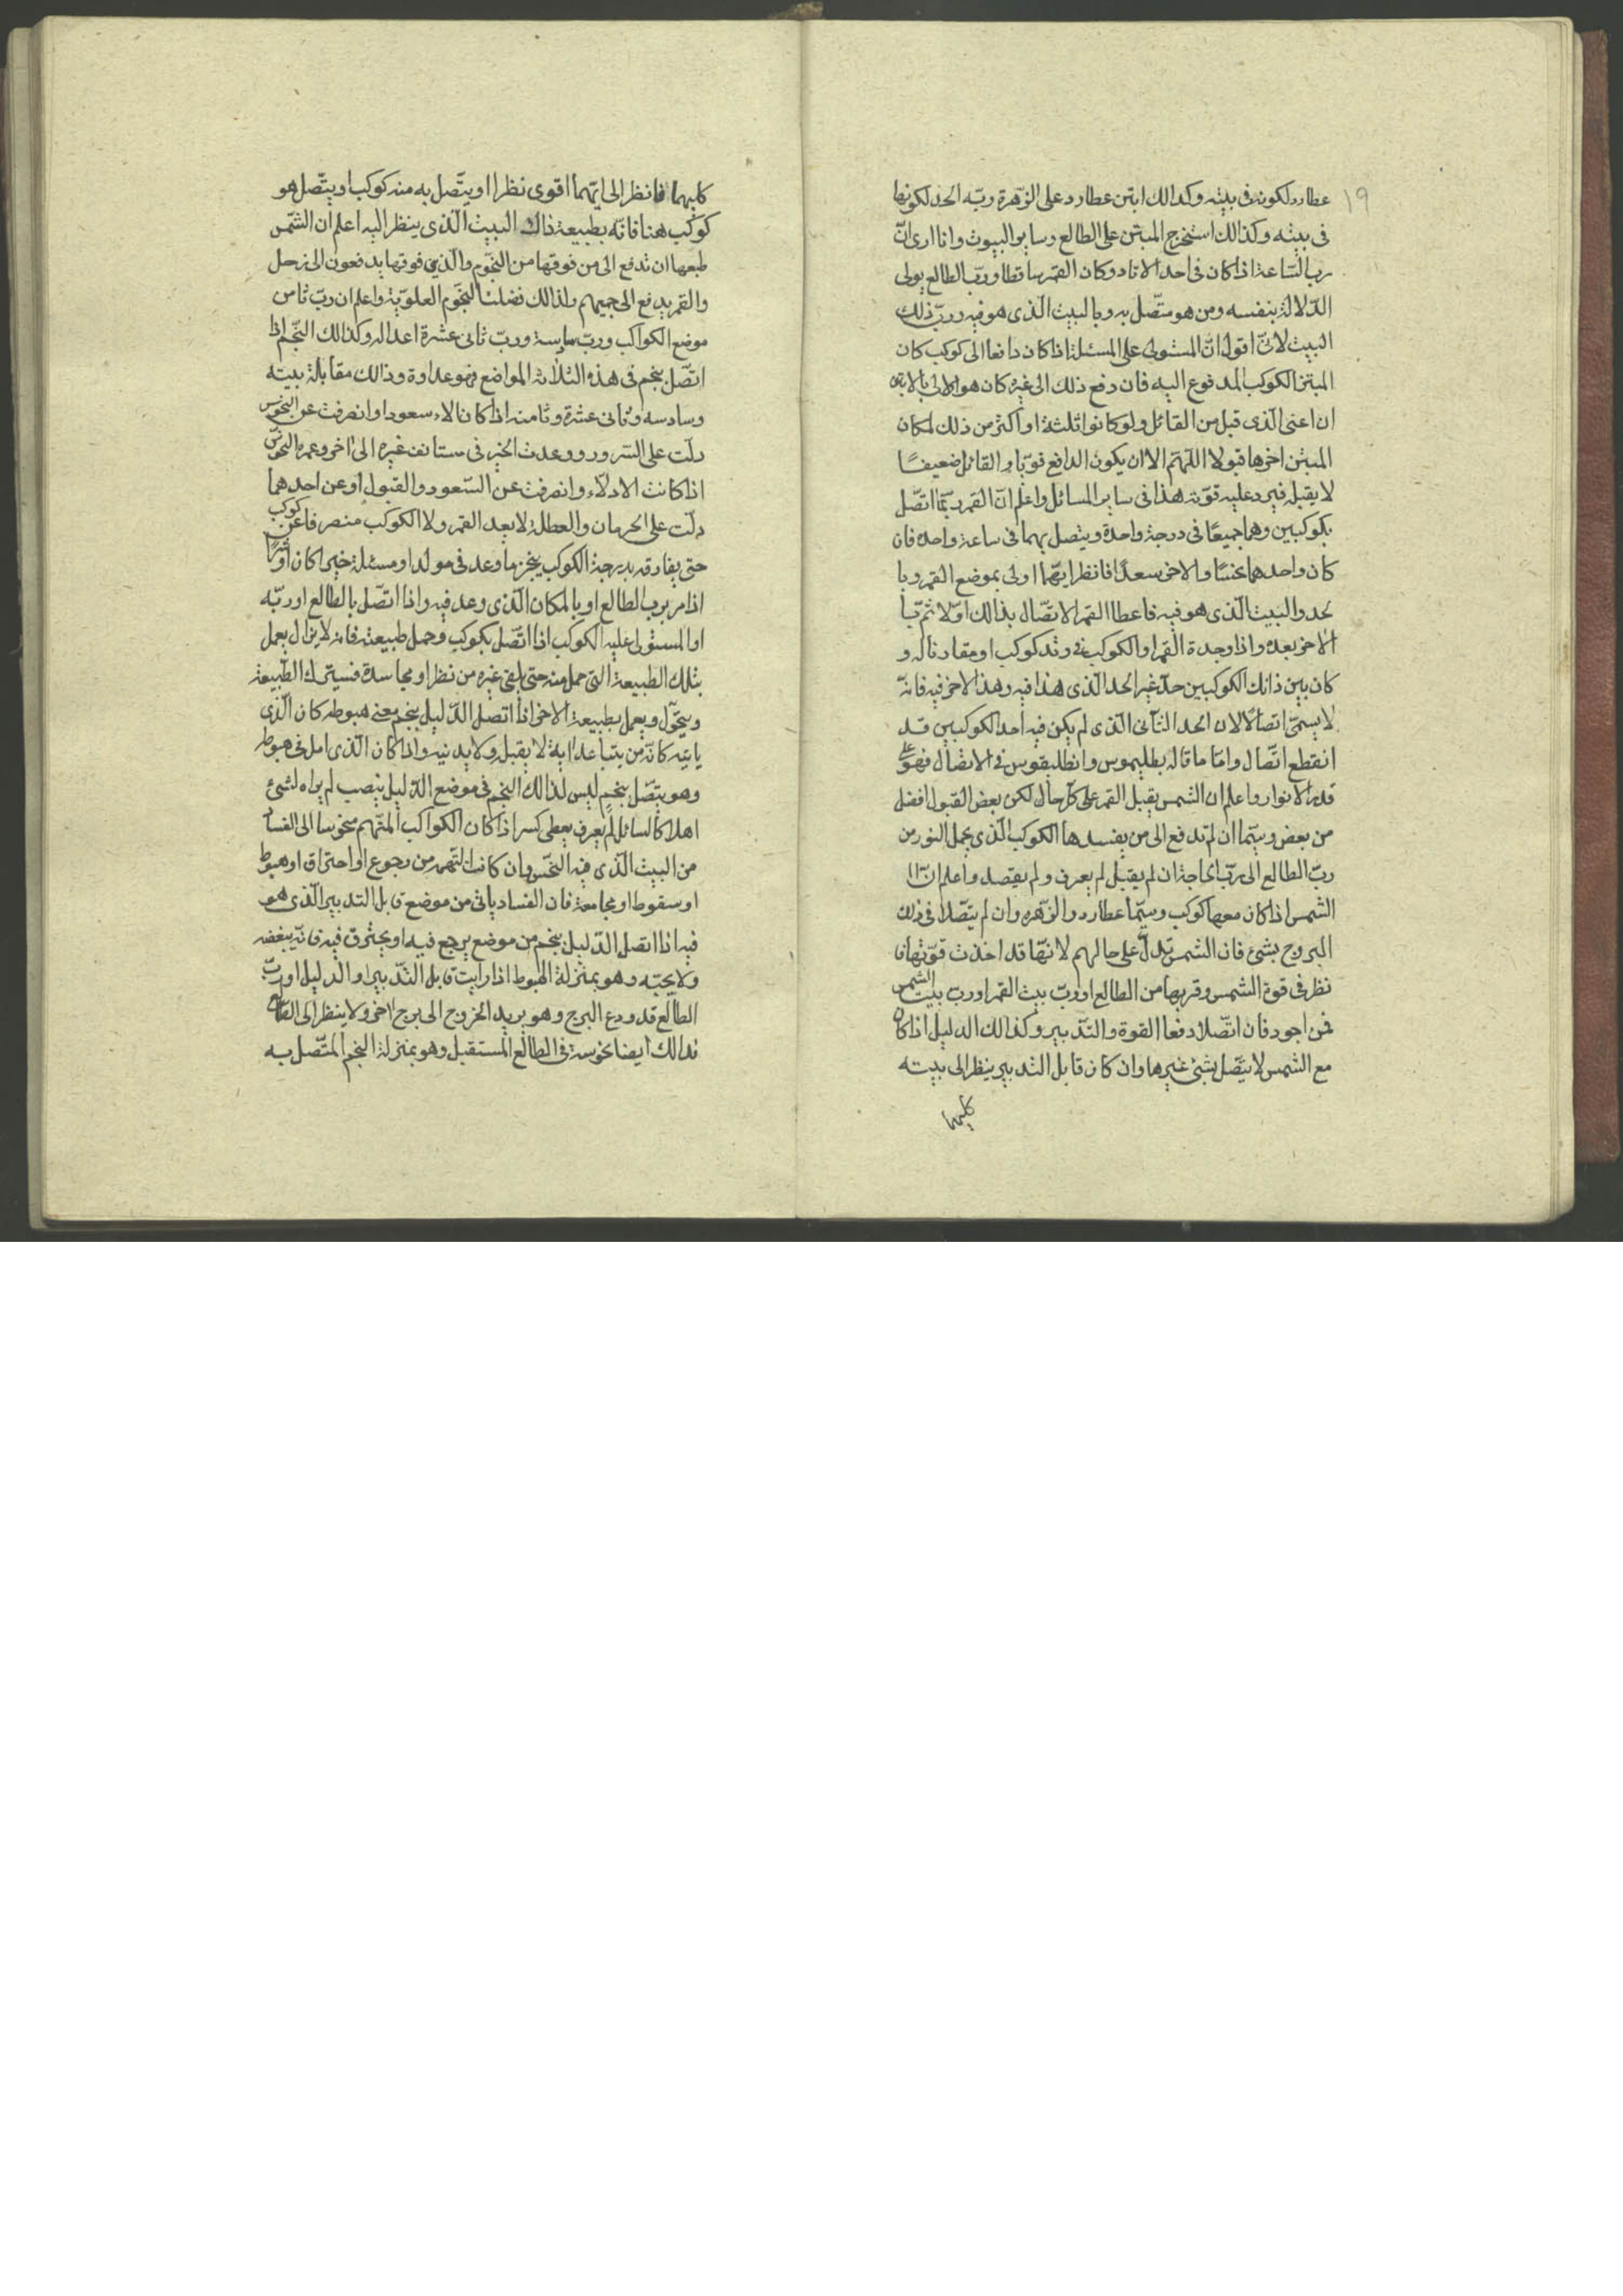 ١٩
عطارد لكونه فى بيته وكذالك ابتز عطارد على الزّهرة ربّه الحد لكونها
فى بيته وكذالك استخرج المبتز على الطالع وساير البيوت وانا ارى انّ
رب السّاعة اذا كان فى احد الاوتاد وكان القمر ساقطا وربّ الطالع يولى
الدّلالة بنفسه ومن هو متّصل به وبالبيت الذى هو فيه وربّ ذلك
البيت لانّى اقول انّ المستولى على المسئلة اذا كان دافعا الى كوكب كان
المبتز الكوكب المدفوع اليه فان دفع ذلك الى غيره كان هو الاولى بالابتزاز
ان اعنى الّذى قبل من القائل ولو كانوا ثلثة او اكثر من ذلك لمكان
المبتز اخرها قبولا اللّهمّ الا ان يكون الدافع قويّا والقائل ضعيفًا
لا يقبله فيرد عليه قوّته هذا فى ساير المسائل واعلم انّ القمر ربّما اتّصل
بكوكبين وهما جميعًا فى درجة واحدة ويتصل بهما فى ساعة واحده فان
كان واحدهما نحسًا والاخر سعدًا فانظر ايّهما اولى بموضع القمر وبا
لحد والبيت الّذى هو فيه فاعط القمر الاتّصال بذالك اوّلا ثمّ با
الاخر بعده واذا وجدة القمر او الكوكب فى وتد كوكب او مقارنا له و
كان بين ذانك الكوكبين حدّ غير الحد الّذى هذا فيه وهذا الاخر فيه فانّه
لا يسمّى اتصالًا لان الحد الثّانى الّذى لم يكن فيه احد الكوكبين قد
انقطع اتّصال وامّا ما قاله بطليموس وانطليقوس فى الاتصال فهو على
قدر الانوار واعلم ان الشمس يقبل القمر على كلّ حال لكن بعض القبول افضل
من بعض وسيّما ان لم تدفع الى من يفسدها الكوكب الّذى يحمل النور من
ربّ الطالع الى ربّ الحاجة ان لم يقبل لم يعرف ولم يقصد واعلم انّ
الشمس اذا كان معها كوكب وسيّما عطارد والزّهره وان لم يتّصلا فى ذلك
البروج بشئ فان الشمس تدلّ على حالهم لانّها قد اخذت قوّتها فا
نظر فى قوة الشمس وقربها من الطالع او ربّ بيت القمر او رب بيت الشمس
فمن اجود فان اتّصلا دفعا القوة والتدبير وكذالك الدليل اذا كان
مع الشمس لا يتّصل بشئ غيرها وان كان قابل التدبير ينظر الى بيته
كليهما
كليهما فانظر الى ايّهما اقوى نظرا او يتّصل به منه كوكب او يتّصل هو
كوكب هنا فانّه بطبيعة ذاك البيت الّذى ينظر اليه اعلم ان الشّمس
طبعها ان تدفع الى من فوقها من النجّوم والّذين فوقها يدفعون الى زحل
والقمر يدفع الى جميعهم ولذالك فضلت النجّوم العلويّة واعلم ان ربّ ثامن
موضع الكواكب وربّ سادسة وربّ ثانى عشرة اعدا له وكذالك النّجم اذا
اتّصل بنجم فى هذه الثلاثة المواضع فهو عداوة وذالك مقابلة بيته
وسادسه وثانى عشرة وثامنه اذا كان الادلاء سعودا وانصرفت عن النّحوس
دلّت على السّرور ووعدت الخير فى مستانف غيره الى اخر وعمره النّحوس
اذا كانت الادلّاء وانصرفت عن السّعود والقبول او عن احدهما
دلّت على الحرمان والعطلة لا بعد القمر ولا الكوكب منصرفا عن كوكب
حتى يفارقه بدرجة الكوكب ينجز ما وعد فى مولد او مسئلة خيرا كان او شرًّا
اذا مر برب الطالع او بالمكان الّذى وعد فيه واذا اتّصل بالطالع او ربّه
او المستولى عليه الكوكب اذا اتّصل بكوكب وحمل طبيعته فانه لا يزال يعمل
بتلك الطبيعة الّتى حمل منه حتى يلقى غيره من نظر او مجاسدة فسيترك الطّبيعة
ويتحوّل ويعمل بطبيعة الاخر اذا اتصل الدّليل بنجم معنى هبوطه كان الّذى
ياتيه كانّه من يتباعد اية لا يقبل ولا يدنيه واذا كان الّذى امل فى هبوط
وهو يتّصل بنجمٍ ليس لذالك النجم فى موضع الدّليل نصيب لم يراه لشئ
اهلا كالسائل لم يعرف يعطى كسر اذا كان الكواكب المتّهم منحوسا الى الفساد
من البيت الّذى فيه النحّس وان كانت التهمه من رجوع او احتراق او هبوط
او سقوط او مجامعة فان الفساد ياتى من موضع قابل التدبير الّذى هو
فيه اذا اتصل الدّليل بنجم من موضع يرجع فيه او يحترق فيه فانّه يبغضه
ولا يحبّه وهو بمنزلة الهبوط اذا رايت قابل التّدبير او الدليل او ربّ
الطالع قد ودع البرج وهو يريد الخروج الى برج اخر ولا ينظر الى الطالع
فذالك ايضا نحوسة فى الطالع المستقبل وهو بمنزلة النجم المتّصل به